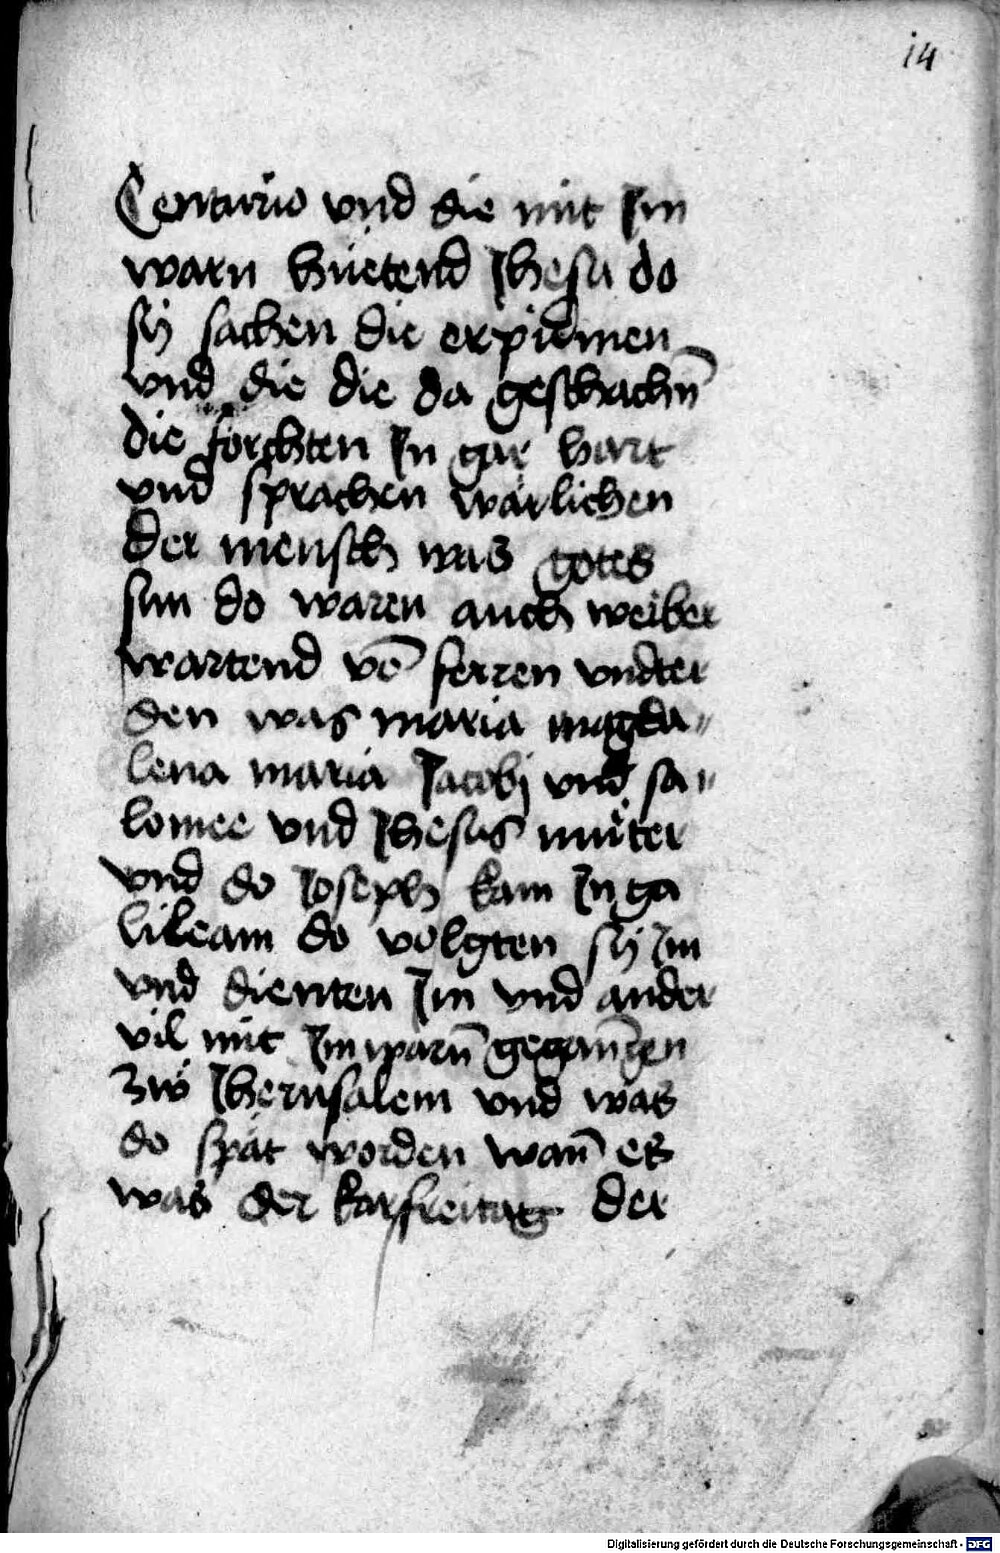 14
Centurio vnd die mit Im
warn hüetend Jhesu do
sÿ sachen die erpidmen
vnd die die da geschachn̄
die forchten In gar hart
vnd sprachen wärlichen
der mensch was gotes
sun do waren auch weiber
wartend vō ferren vndter
den was maria magda-
lena maria Jacobj vnd sa-
lomee vnd Jhesus muͤter
vnd do Joseph kam In ga
lileam do volgten sÿ Im
vnd dienten Im vnd ander
vil mit Im warn̄ gegan̄gen
zwͦ Jherusalem vnd was
do spät worden wan̄ es
was der karfreitag der
Digitalisierung gefördert durch die Deutsche Forschungsgemeinschaft - DFG